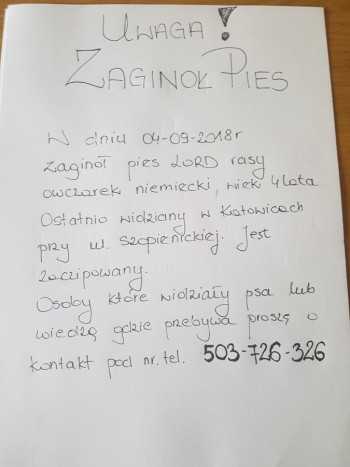 UWAGA!
ZAGINOŁ PIES
W dniu 04-09-2018r
zaginół pies LORD rasy
owczarek niemiecki, wiek 4 lata.
Ostatnio widziany w Katowicach
przy ul. szopienickiej. Jest
zaczipowany.
Osoby które widziały psa lub
wiedzą gdzie przebywa proszę o
kontakt pod nr. tel. 503-726-326